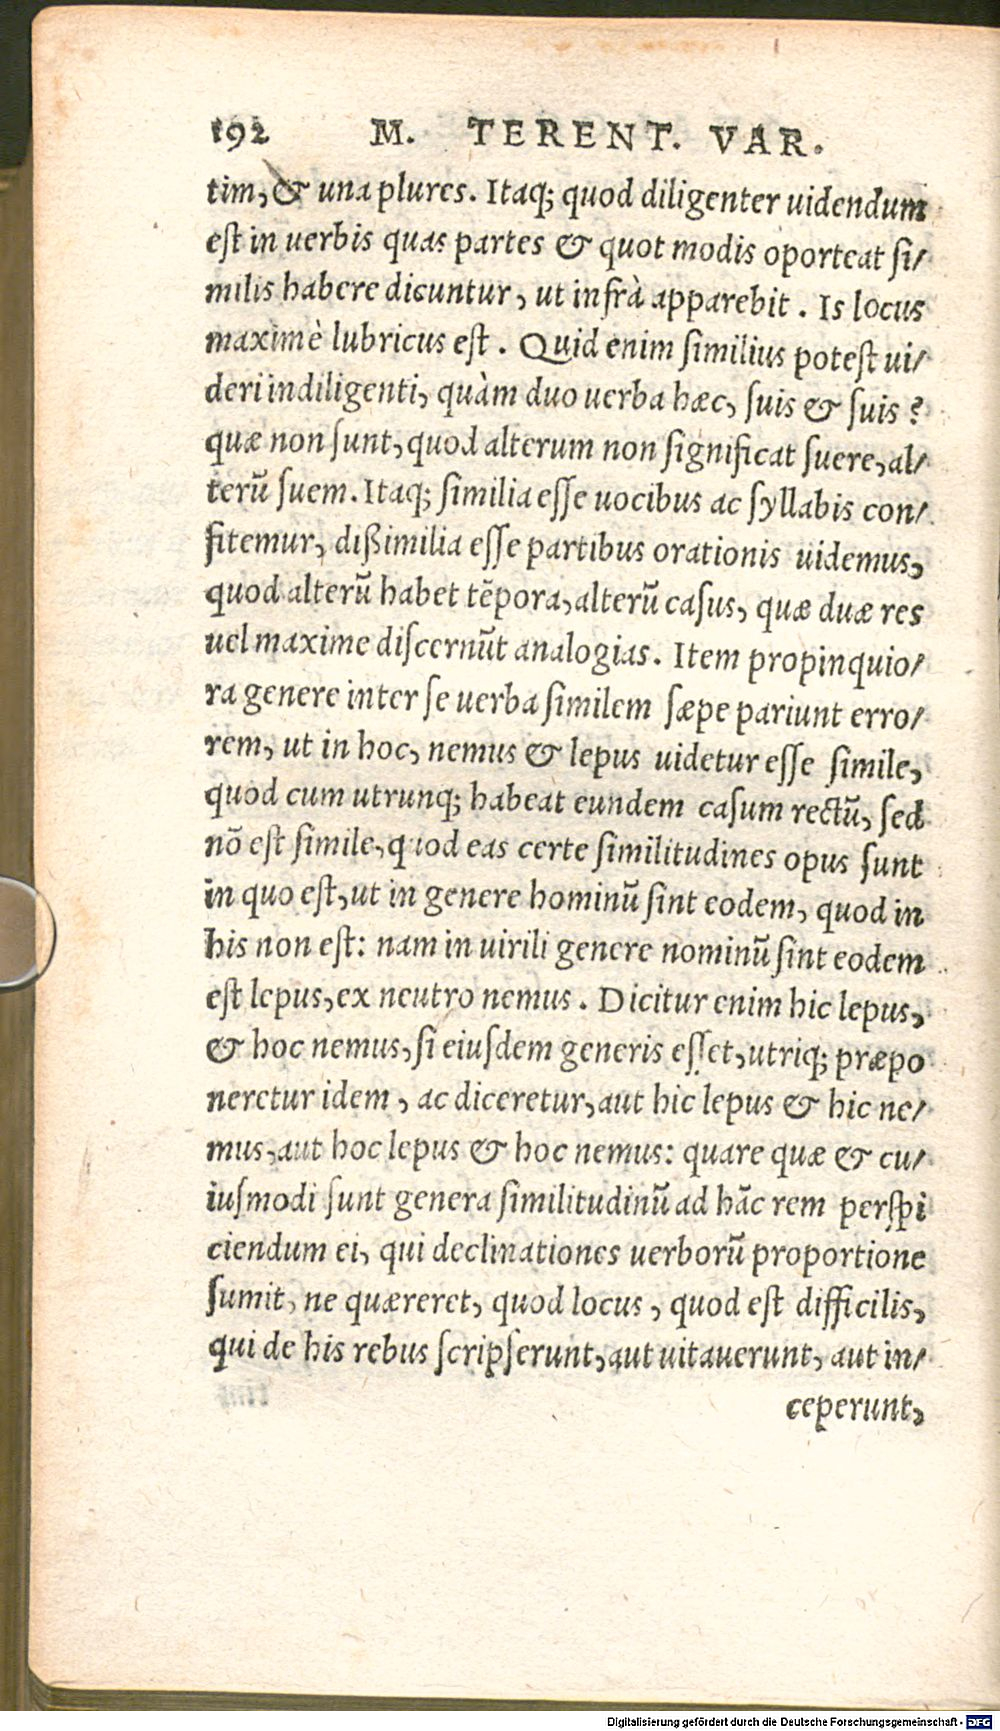 192 M. TERENT. VAR.
tim, & una plures. Itaq; quod diligenter uidendum
eſt in uerbis quas partes & quot modis oporteat ſi/
milis habere dicuntur, ut infrà apparebit. Is locus
maximè lubricus eſt. Quid enim ſimilius poteſt ui/
deri indiligenti, quàm duo uerba hæc, ſuis & ſuis?
quæ non ſunt, quod alterum non ſignificat ſuere, al/
terũ ſuem. Itaq; ſimilia eſſe uocibus ac ſyllabis con/
fitemur, dißimilia eſſe partibus orationis uidemus,
quod alterũ habet tẽpora, alterũ caſus, quæ duæ res
uel maxime diſcernũt analogias. Item propinquio/
ra genere inter ſe uerba ſimilem ſæpe pariunt erro/
rem, ut in hoc, nemus & lepus uidetur eſſe ſimile,
quod cum utrunq; habeat eundem caſum rectũ, ſed
nõ eſt ſimile, quod eas certe ſimilitudines opus ſunt
in quo eſt, ut in genere hominũ ſint eodem, quod in
his non eſt: nam in uirili genere nominũ ſint eodem
eſt lepus, ex neutro nemus. Dicitur enim hic lepus,
& hoc nemus, ſi eiuſdem generis eſſet, utriq; præpo
neretur idem, ac diceretur, aut hic lepus & hic ne/
mus, aut hoc lepus & hoc nemus: quare quæ & cu/
iuſmodi ſunt genera ſimilitudinũ ad hãc rem perſpi
ciendum ei, qui declinationes uerborũ proportione
ſumit, ne quæreret, quod locus, quod eſt difficilis,
qui de his rebus ſcripſerunt, aut uitauerunt, aut in/
ceperunt,
Digitalisierung gefördert durch die Deutsche Forschungsgemeinschaft - DFG